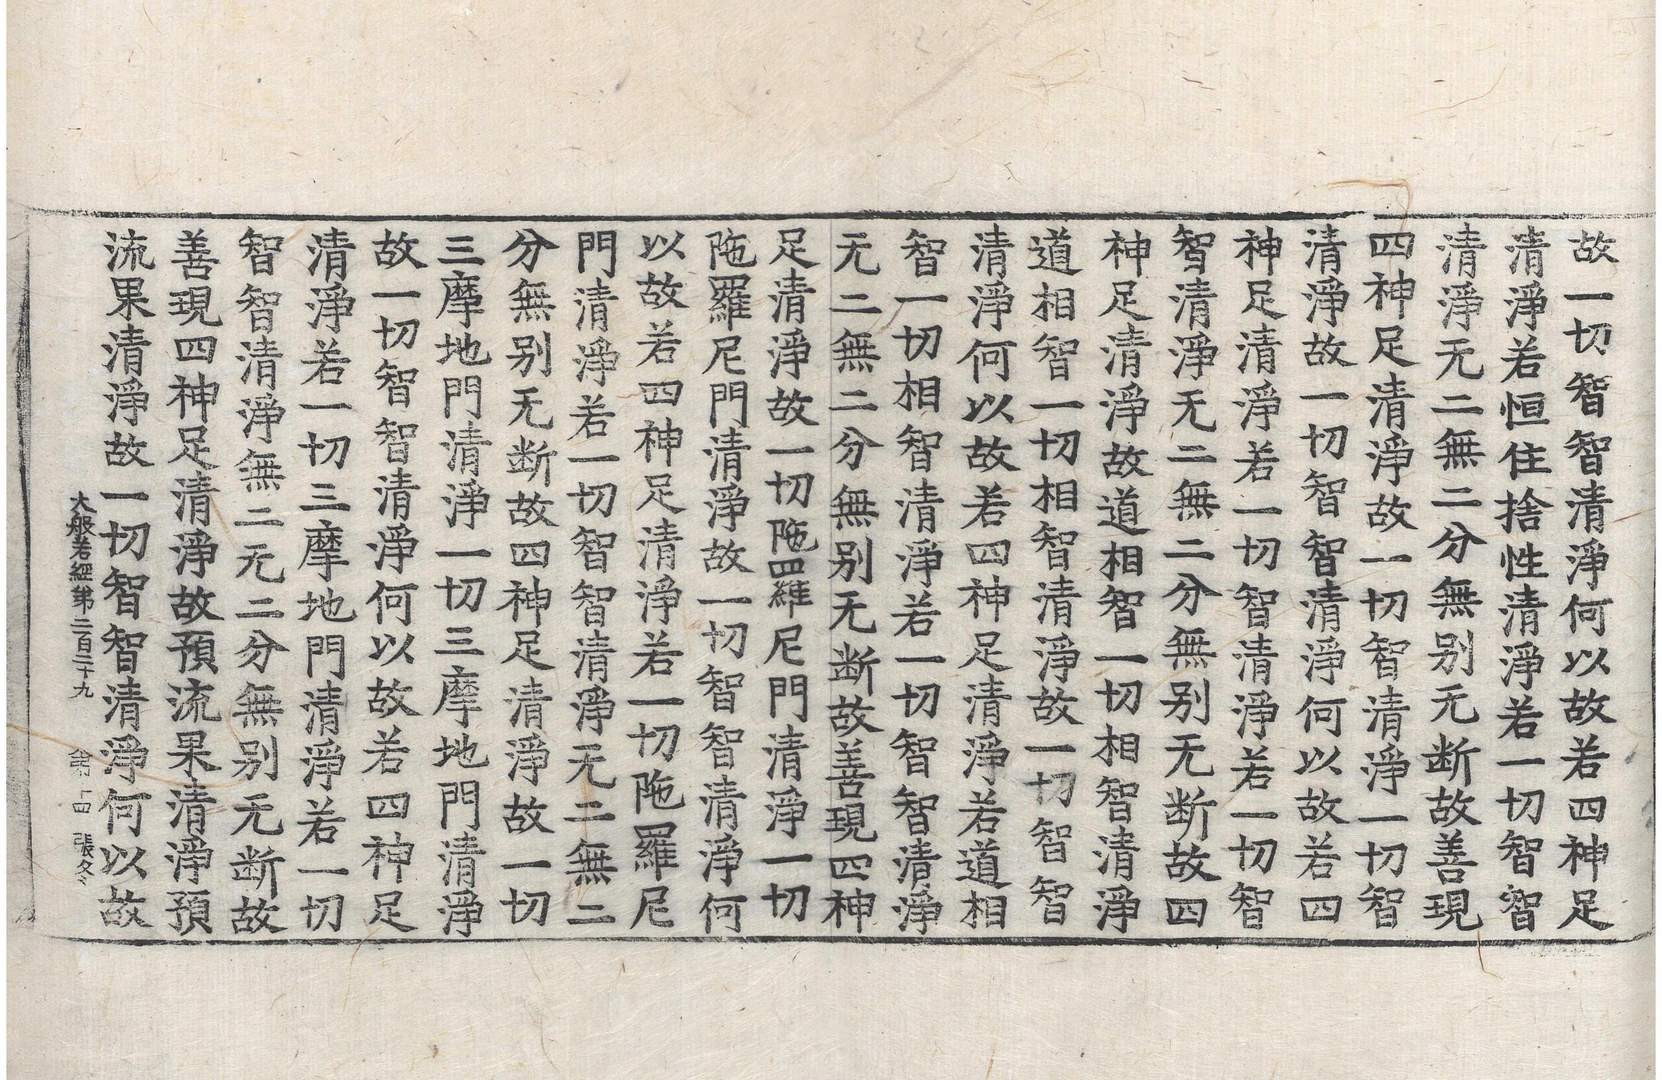 故一切智智清淨何以故若四神足
清淨若恒住捨性清淨若一切智智
清淨无二無二分無别无断故善現
四神足清淨故一切智清淨一切智
清淨故一切智智清淨何以故若四
神足清淨若一切智清淨若一切智
智清淨无二無二分無别无断故四
神足清淨故道相智一切相智清淨
道相智一切相智清淨故一切智智
清淨何以故若四神足清淨若道相
智一切相智清淨若一切智智清淨
无二無二分無别无断故善現四神
足清淨故一切陁羅尼門清淨一切
陁羅尼門清淨故一切智智清淨何
以故若四神足清淨若一切陁羅尼
門清淨若一切智智清淨无二無二
分無别无断故四神足清淨故一切
三摩地門清淨一切三摩地門清淨
故一切智智清淨何以故若四神足
清淨若一切三摩地門清淨若一切
智智清淨無二无二分無别无断故
善現四神足清淨故預流果清淨預
流果清淨故一切智智清淨何以故
大般若經第二百三十九 第十四張